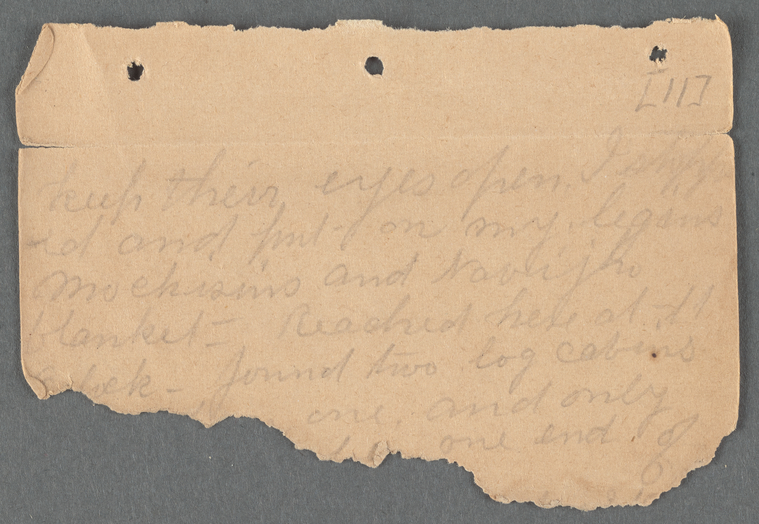 [11]
keep their eyes open. I stopp
ed and put on my legans
Mockisins and Navijho
blanket = Reached here at 11
Oclock - found two log cabins
one, and only
one end of